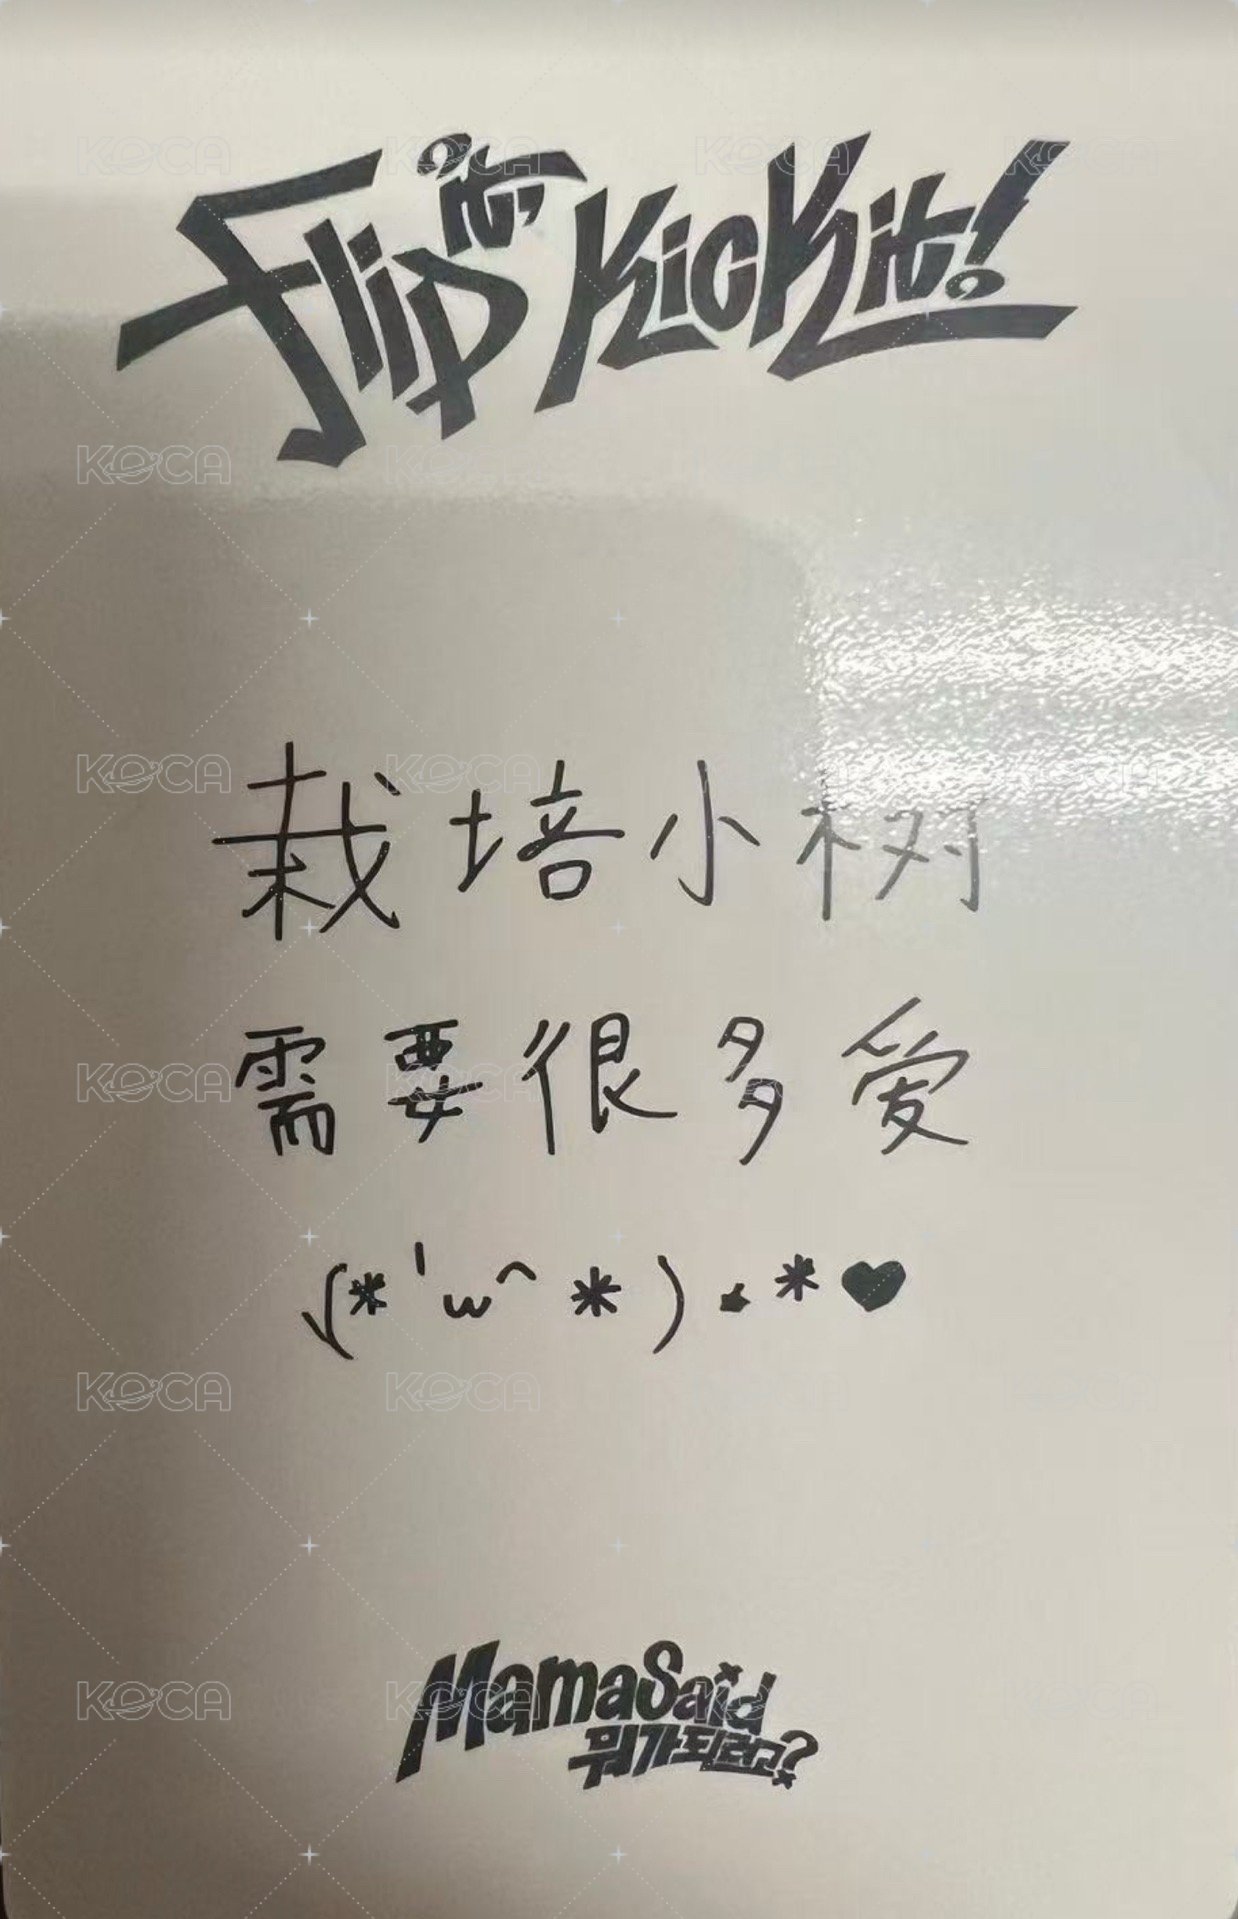 Flip it, Kick it!
栽培小树
需要很多爱
(*'ω^*)⋆*♥
MamaSaid
뭐가되려고?
KOCA